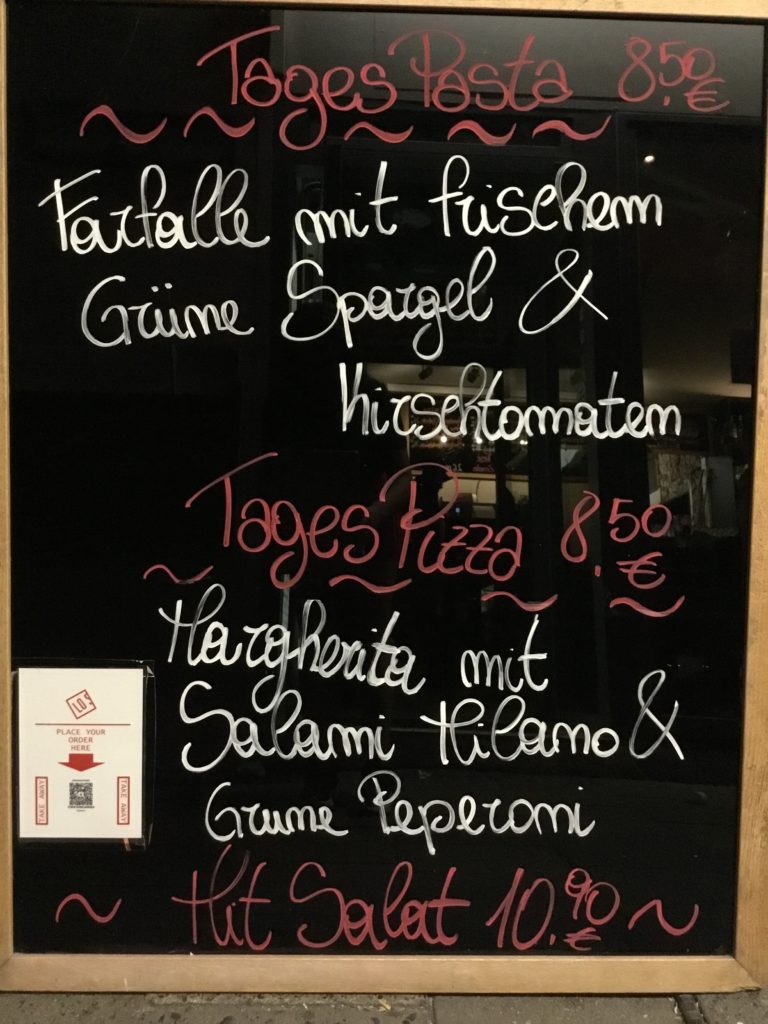 Tages Pasta 8.50 €
Farfalle mit frischem
Grüne Spargel &
Kirschtomaten
Tages Pizza 8.50 €
Margherita mit
Salami Milano &
Grune Peperoni
Hit Salat 10.90 €
PLACE YOUR
ORDER
HERE
TAKE AWAY
TAKE AWAY